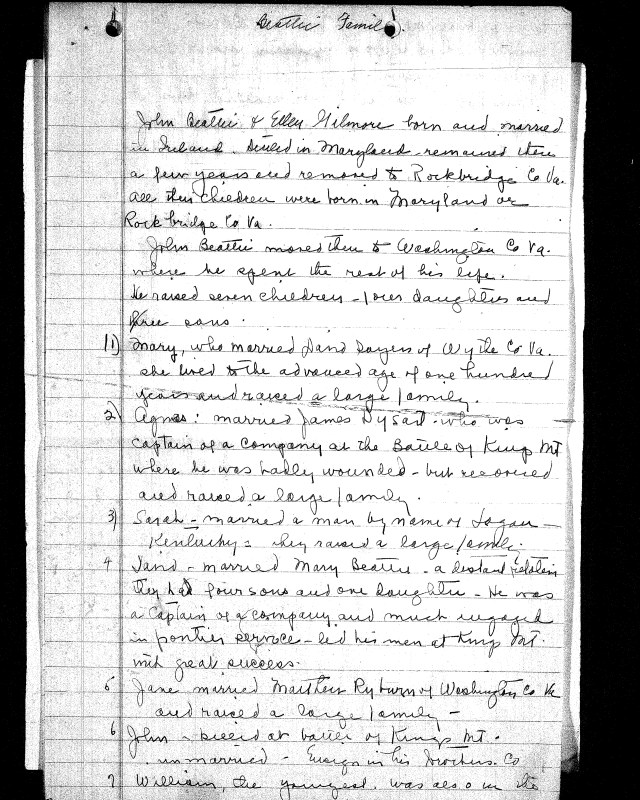 Beattie Family.
John Beattie & Ellen Gilmore born and married
in Ireland. Settled in Maryland - remained there
a few years and removed to Rockbridge Co Va.
All their children were born in Maryland or
Rockbridge Co Va.
John Beattie moved then to Washington Co Va.
where he spent the rest of his life.
He raised seven children - four daughters and
three sons.
1) Mary, who married David Sayers of Wythe Co Va.
she lived to the advanced age of one hundred
years and raised a large family.
2) Agnes: married James Dysart - who was
Captain of a company at the Battle of Kings Mt
where he was badly wounded - but recovered
and raised a large family.
3) Sarah - married a man by name of Logan -
Kentucky = they raised a large family.
4 David - married Mary Beattie - a distant relation
they had four sons and one daughter - He was
a Captain of a company and much engaged
in frontier service - led his men at Kings Mt.
with great success.
5 Jane married Matthew Ryburn of Washington Co Va
and raised a large family -
6 John - killed at battle of Kings Mt.
unmarried - Ensign in his brothers Co
7 William, the youngest, was also in the